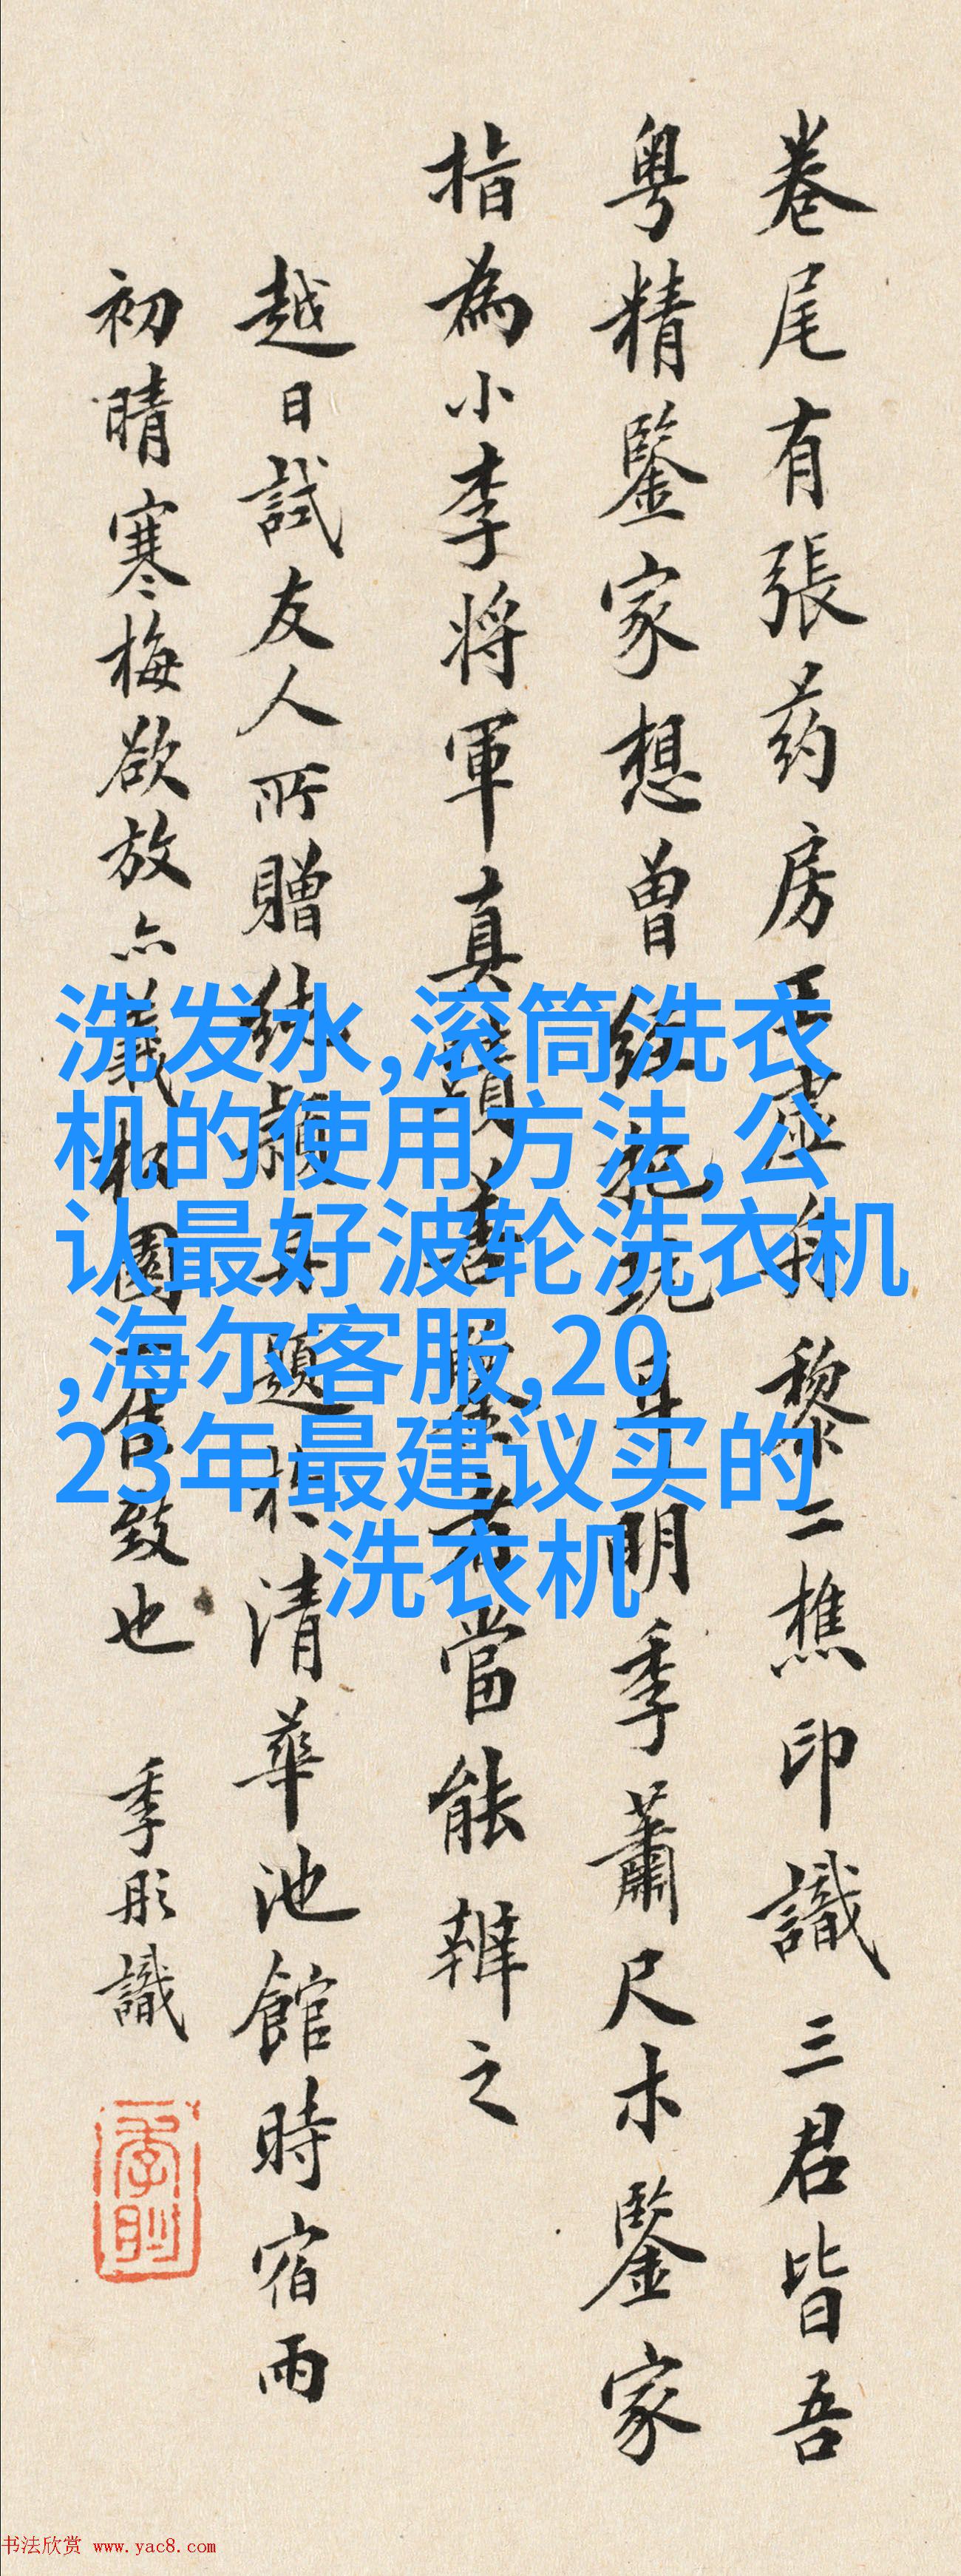 卷尾有張药房王虛舟黎二樵印識三君皆吾
粤精鑒家想曾經把玩且明季蕭尺木鑒家
指為小李將軍真蹟善鑒者當能辨之
越日試友人所贈純穎再題於清華池館時宿雨
初晴寒梅欲放亦義松園佳致也
季彤識
洗发水,滚筒洗衣
机的使用方法,公
认最好波轮洗衣机
,海尔客服,20
23年最建议买的
洗衣机
书法欣赏 www.yac8.com